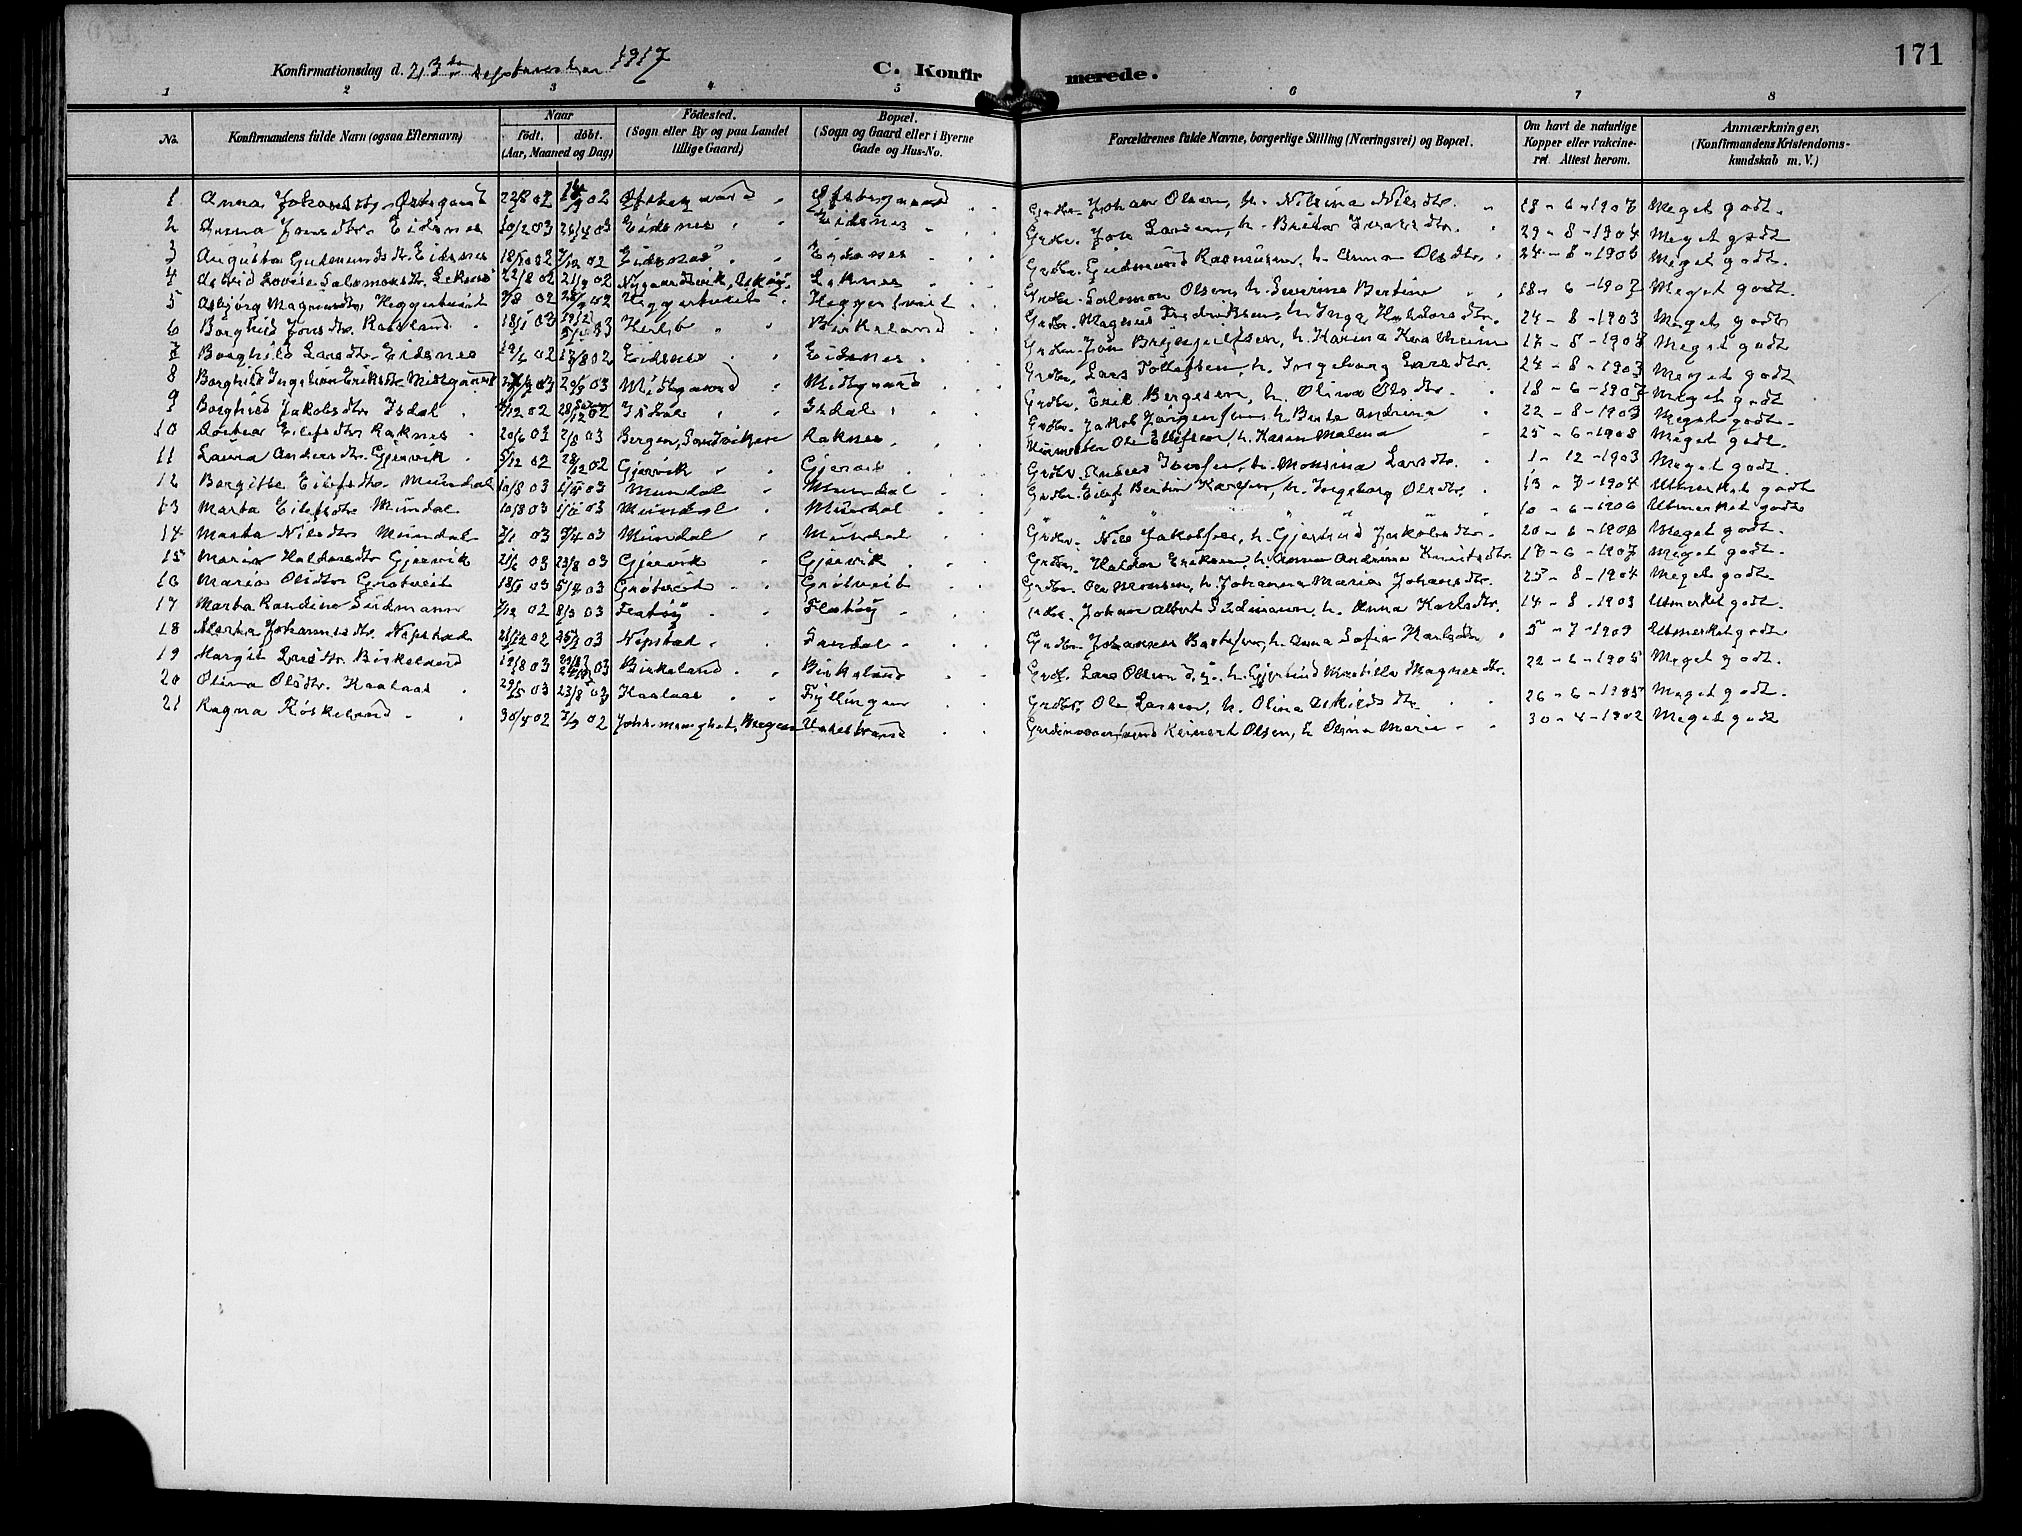 171
Konfirmationsdag d. 23de september 1917 C. Konfirmerede.
1 2 3 4 5 6 7 8
No. Konfirmandens fulde Navn (ogsaa Efternavn) Naar født. døbt. (Aar, Maaned og Dag) Fødested. (Sogn eller By og paa Landet tillige Gaard) Bopæl. (Sogn og Gaard eller i Byerne Gade og Hus-No. Forældrenes fulde Navne, borgerlige Stilling (Næringsvei) og Bopæl. Om havt de naturlige Kopper eller vakcineret. Attest herom. Anmærkninger, (Konfirmandens Kristendomskundskab m. V.)
1 Anna Johansdtr. 22/8 02 Grdbr. Johan Olsen, h. Niksina Nilsdtr. 18-6-1907 Meget godt.
2 Anna Jonsdtr. Eidsnes 20/2 03 26/4 03 Eidsnes Eidsnes Grdbr. Jon Larsen, h. Brita Ivarsdtr. 29-8-1904 Meget godt
3 Augusta Gudmundsdtr. Eidsnes 7/12 02 Eidsnes Eidsnes Grdbr. Gudmund Rasmussen, h. Anna Olsdtr. 24-8-1906 Meget godt.
4 Astrid Lovise Salomonsdtr. Leknes 22/8 02 21/9 02 Nygaardsvik, Askøy. Leknes Grdbr. Salomon Olsen, h. Severine Bertine 18-6-1907 Meget godt.
5 Asbjørg Magnusdtr. Heggertveit 7/8 02 28/9 02 Heggertveit Heggertveit Grdbr. Magnus Fredriksen, h. Inga Haldorsdtr. 24-8-1903 Meget godt
6 Borghild Jonsdtr. 18/1 03 Herlø Birkeland Grdbr. Jon Brynjulfsen, h. Karina Kvalheim 17-8-1908 Meget godt
7 Borghild Larsdtr. Eidsnes 19/6 02 17/8 02 Eidsnes Eidsnes. Grdbr. Lars Tollefsen, h. Ingeborg Larsdtr. 24-8-1903 Meget godt
8 Borghild Ingeline Eriksdtr. Midtgaard 29/9 03 Midtgaard Midtgaard Grdbr. Erik Bergesen, h. Olina Olsdtr. 18-6-1907 Meget godt
9 Borghild Jakobsdtr. Isdal 12 02 28/12 02 Isdal Isdal Grdbr. Jakob Jørgensen, h. Berte Andrina 22-8-1903 Meget godt.
10 Dortea Eilefsdtr. Raknes 20/6 03 2/8 03 Bergen, Sandviken Raknes. Ole Ellefsen, h. Karen Malena 25-6-1908 Meget godt.
11 Laura Andersdtr. Gjervik 5/12 02 28/12 02 Gjervik Gjervik Grdbr. Anders Iversen, h. Monsina Larsdtr. 1-12-1903 Meget godt.
12 Borgitte Eilefsdtr. Mundal 10/8 03 1/11 03 Mundal Mundal Grdbr. Eilef Bertin Karlsen, h. Ingeborg Olsdtr. 13-7-1904 Utmerket godt
13 Marta Eilefsdtr. Mundal 10/8 03 1/11 03 Mundal Mundal " " " " 10-6-1906 Utmerket godt
14 Marta Nilsdtr. Mundal 7/1 03 7/4 03 Mundal Mundal Grdbr. Nils Jakobsen, h. Gjertrud Jakobsdtr. 20-6-1908 Meget godt.
15 Maria Haldorsdtr. Gjervik 21/6 03 23/8 03 Gjervik Gjervik Grdbr. Haldor Eriksen, h. Anna Andrina Knutsdtr. 17-6-1907 Meget godt
16 Maria Olsdtr. Grøtveit 18/3 03 5/4 03 Grøtveit Grøtveit Grdbr. Ole Monsen, h. Johanna Maria Johansdtr. 25-8-1904 Meget godt.
17 Marta Randina Sudmann 7/12 02 8/3 03 Flatøy Flatøy Grdbr. Johan Albert Sudmann, h. Anna Karlsdtr. 14-8-1903 Utmerket godt.
18 Marta Johannesdtr. Nepstad 03 Nepstad Grdbr. Johannes h. Anna Sofia Karlsdtr. 5-7-1909 Utmerket godt
19 Margit Larsdtr. Birkeland 19/8 03 Birkeland Birkeland Grdbr. Lars Olsen d.y. h. Gjertrud Martilla Magnesdtr. 22-6-1905 Meget godt.
20 Olina Olsdtr. Haalaas 29/5 03 23/8 03 Haalaas Fyllingen Grdbr. Ole Larsen, h. Olina Askildsdtr. 26-6-1905 Meget godt.
21 Ragna Røskeland 30/4 02 7/9 02 Joh. menighet, Bergen Reinert Olsen, h. Olina Marie 30-4-1902 Meget godt